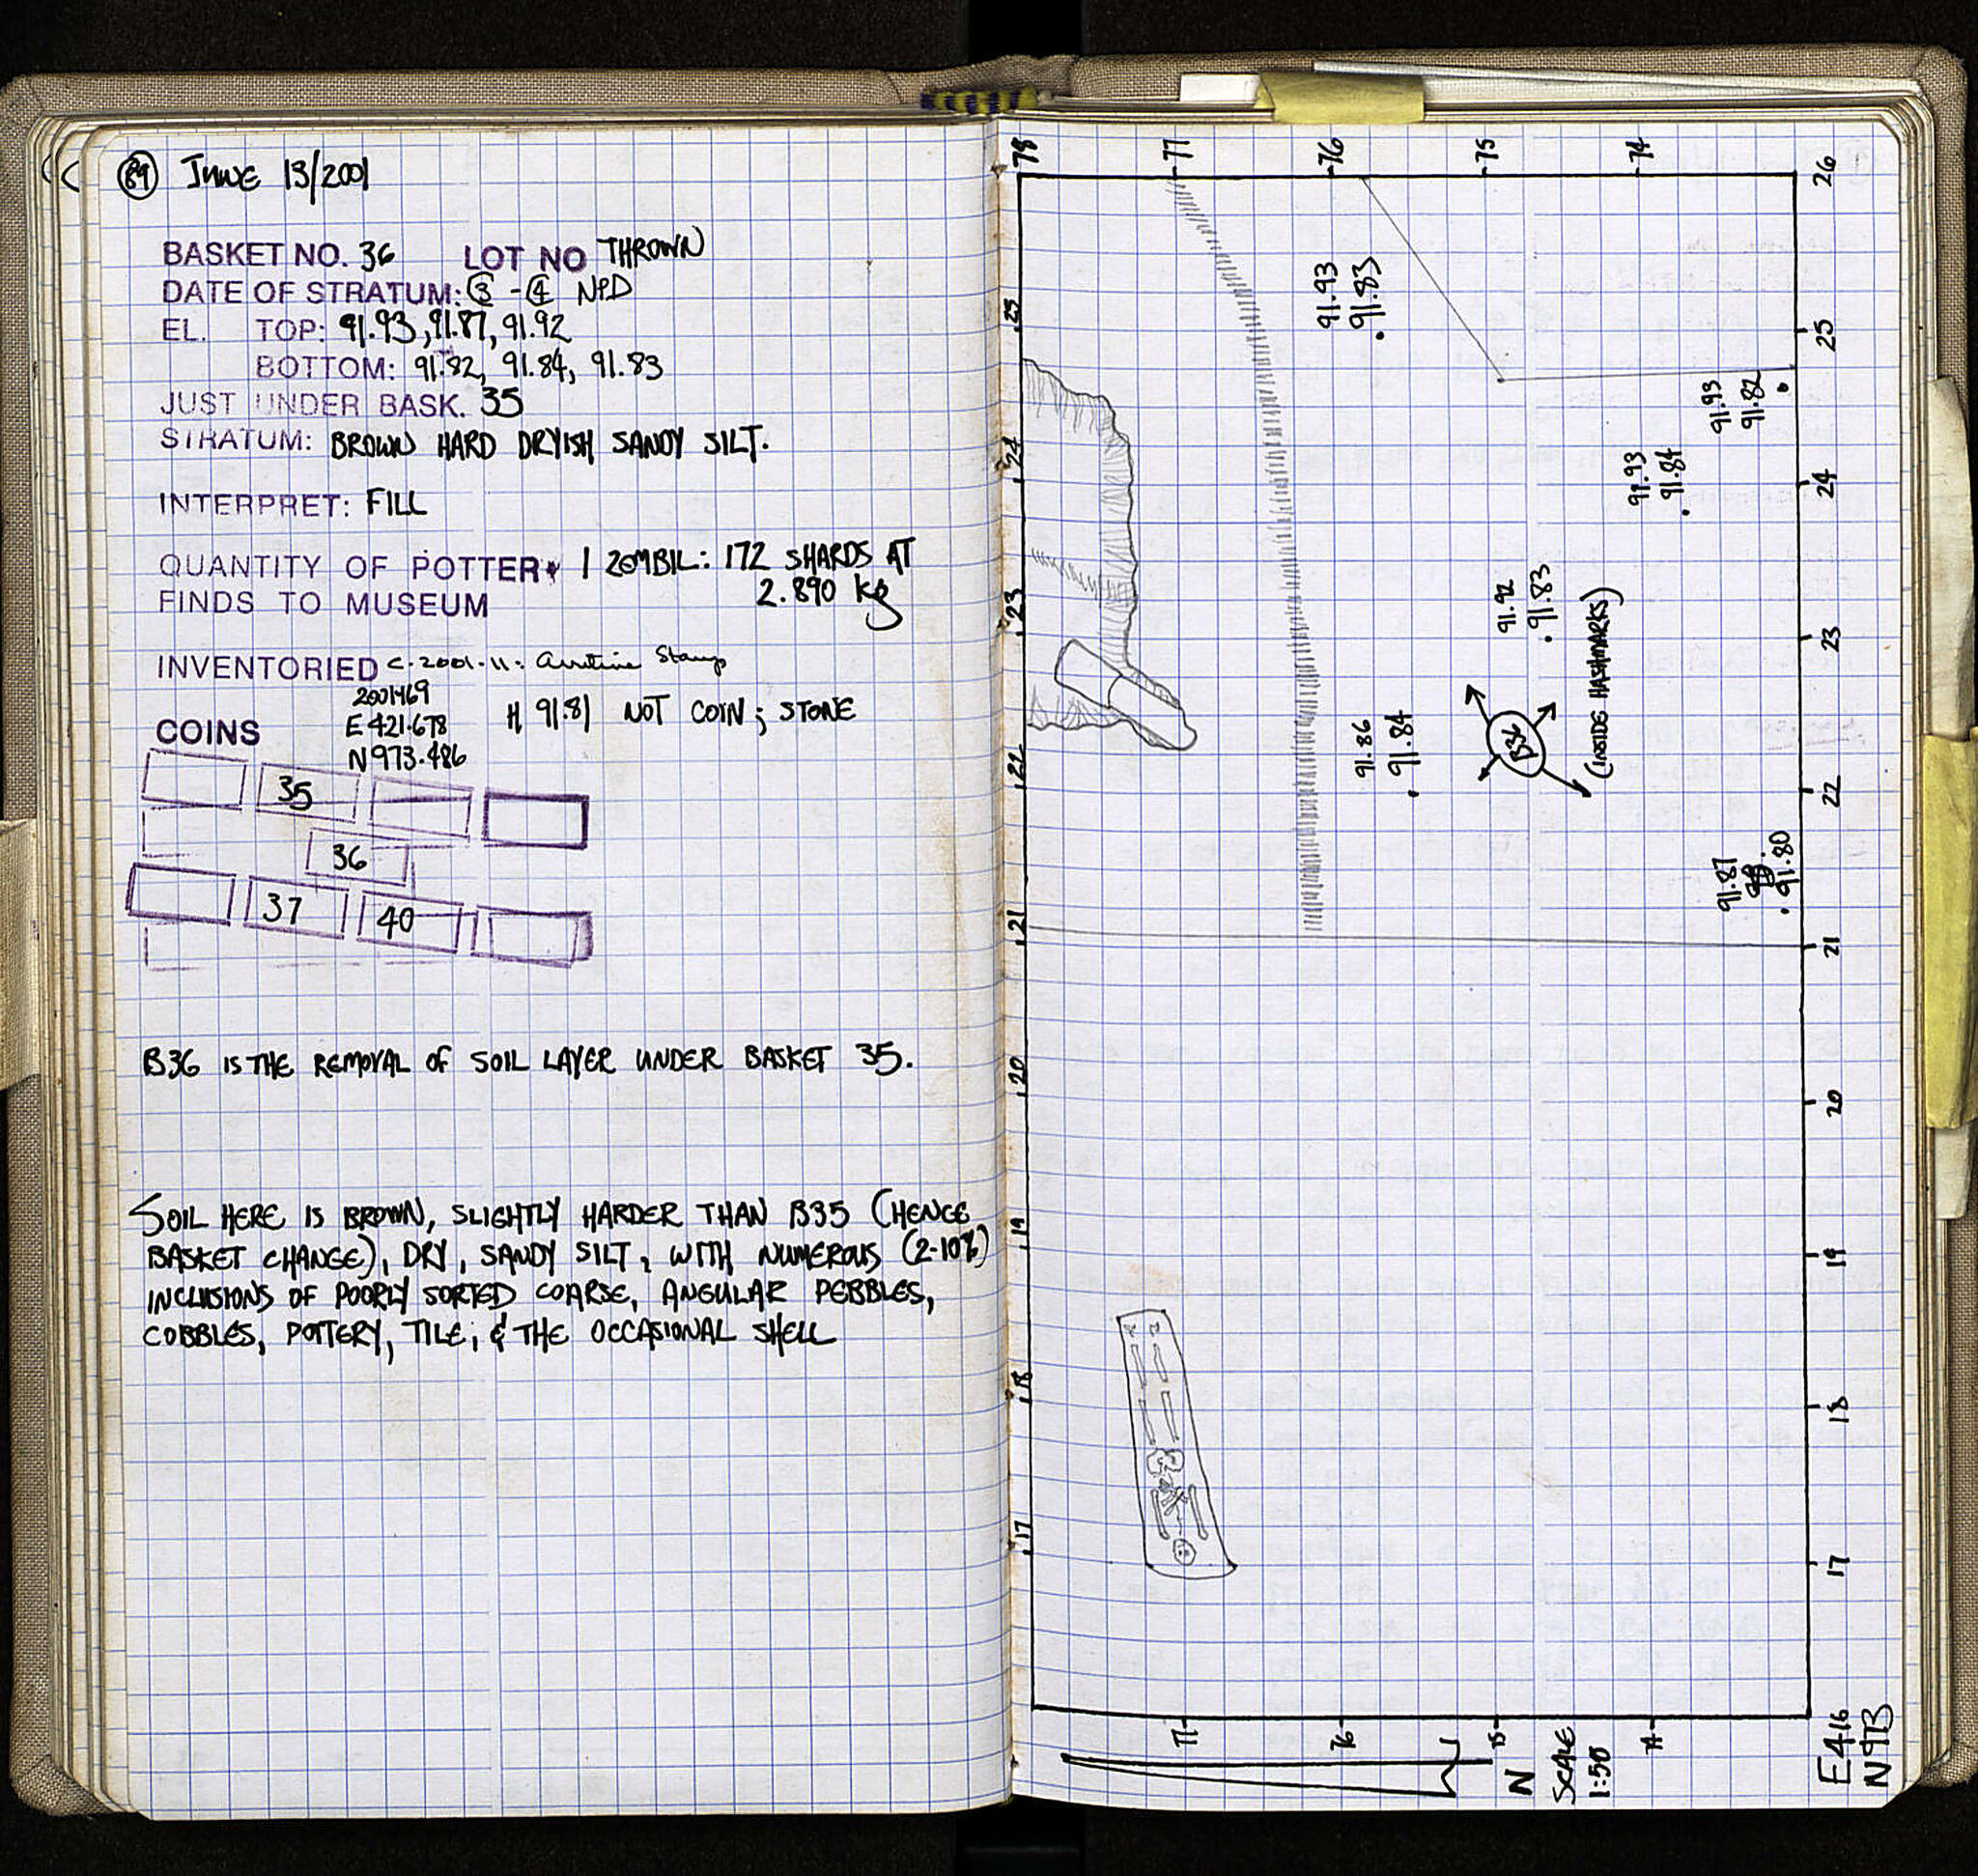 89 JUNE 13/2001
BASKET NO. 36 LOT NO THROWN
DATE OF STRATUM: 3 - 4 NPD
EL. TOP: 91.93, 91.87, 91.92
BOTTOM: 91.82, 91.84, 91.83
JUST UNDER BASK. 35
STRATUM: BROWN HARD DRYISH SANDY SILT.
INTERPRET: FILL
QUANTITY OF POTTERY 1 ZEMBIL: 172 SHARDS AT
2.890 kg
FINDS TO MUSEUM
INVENTORIED C-2001-11: Arretine Stamp
2001469
COINS E 421.678 H 91.81 NOT COIN; STONE
N 973.486
35
36
37 40
B36 IS THE REMOVAL OF SOIL LAYER UNDER BASKET 35.
SOIL HERE IS BROWN, SLIGHTLY HARDER THAN B35 (HENCE
BASKET CHANGE), DRY, SANDY SILT, WITH NUMEROUS (2-10%)
INCLUSIONS OF POORLY SORTED COARSE, ANGULAR PEBBLES,
COBBLES, POTTERY, TILE, & THE OCCASIONAL SHELL
78 77 76 75 74
26
25 25
24 24
23 23
22 22
21 21
20 20
19 19
18 18
17 17
91.93
.91.83
91.93
91.82
91.93
91.84
91.92
.91.83
91.86
.91.84
B36
(INSIDE HASHMARKS)
91.87
.91.80
77 76 75 74
N
SCALE
1:50
E416
N973